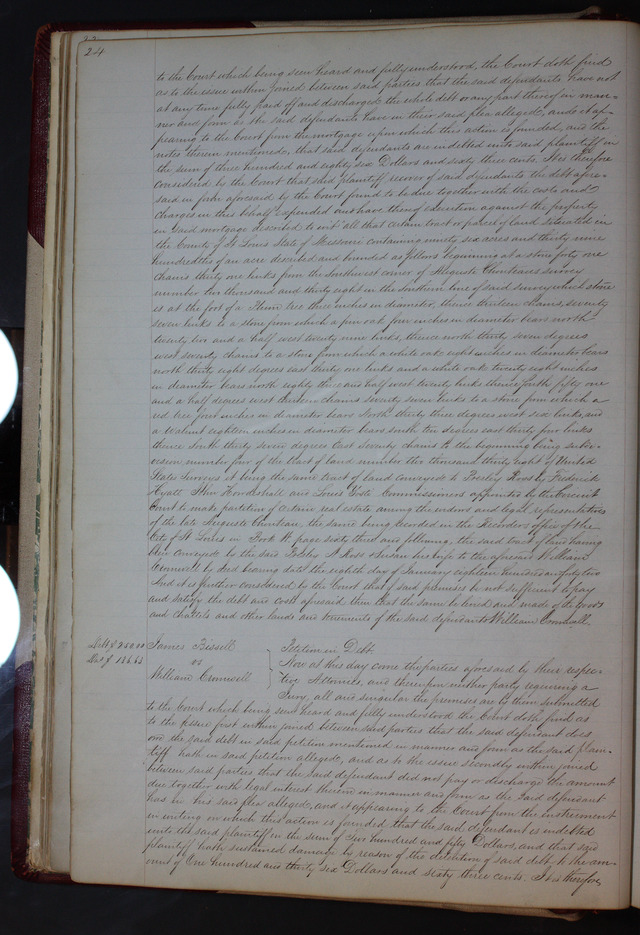 24
to the Court which being seen heard and fully understood, the Court doth find
as to the issue within joined between said parties that the said defendants have not
at any time fully paid off and discharged the whole debt or any part thereof in man=
ner and form as the said defendants have in their said plea alleged, and it ap=
pearing to the Court from the mortgage upon which this action is founded, and the
notes therein mentioned, that said defendants are indebted unto said plaintiff in
the sum of three hundred and eighty six Dollars and sixty three cents. It is therefore
considered by the Court that said plaintiff recover of said defendants the debt afore=
said in form aforesaid by the Court found to be due together with the costs and
charges in this behalf expended and have thereof execution against the property
in said mortgage described to wit all that certain tract or parcel of land situated in
the County of St Louis State of Missouri containing ninety six acres and thirty nine
hundredths of an acre described and bounded as follows beginning at a stone forty one
chains thirty one links from the Southwest corner of Auguste Chouteaus survey
number two thousand and thirty eight in the Southern line of said survey which stone
is at the foot of a Thorn tree three inches in diameter, thence thirteen chains seventy
seven links to a stone from which a pin oak four inches in diameter bears north
twenty two and a half west twenty nine links, thence north thirty seven degrees
west seventy chains to a stone from which a white oak eight inches in diameter bears
north thirty eight degrees east thirty one links and a white oak twenty eight inches
in diameter bears north eighty three and half west twenty links thence South fifty one
and a half degrees west thirteen chains seventy seven links to a stone from which a
red tree four inches in diameter bears North thirty three degrees west six links, and
a Walnut eighteen inches in diameter bears south ten degrees east thirty four links
thence South thirty seven degrees East Seventy chains to the beginning being subdi=
vision number four of the tract of land number two thousand thirty eight of United
States Surveys it being the same tract of land conveyed to Presley Ross by Frederick
Hyatt and Commissioners appointed by the Circuit
Court to make partition of certain real estate among the widow and legal representatives
of the late Auguste Chouteau, the same being recorded in the Recorders office of the
City of St Louis in Book page sixty three and following, the said tract of land having
been conveyed by the said Presley Ross his wife to the aforesaid William
Cromwell by deed bearing date the eighth day of January eighteen hundred and fifty two
And it is further considered by the Court that if said premises be not sufficient to pay
and satisfy the debt and costs aforesaid then that the same be levied and made of the goods
and chattels and other lands and tenements of the said defendants William Cromwell.
Debt $250.00 James Bissell } Petition in Debt
Das $ 136.63 vs Now at this day come the parties aforesaid by their respec=
William Cromwell tive Attorneys, and thereupon neither party requiring a
Jury, all and singular the premises are by them submitted
to the Court which being seen heard and fully understood the Court doth find as
to the issue first within joined between said parties that the said defendant does
owe the said debt in said petition mentioned in manner and form as the said plain=
tiff hath in said petition alleged, and as to the issue secondly within joined
between said parties that the said defendant did not pay or discharge the amount
due together with legal interest therein in manner and form as the said defendant
has in his said plea alleged, and it appearing to the Court from the instrument
in writing on which this action is founded that the said defendant is indebted
unto the said plaintiff in the sum of Two hundred and fifty Dollars, and that said
plaintiff hath sustained damage by reason of the detention of said debt to the am=
ount of One hundred and thirty six Dollars and sixty three cents. It is therefore